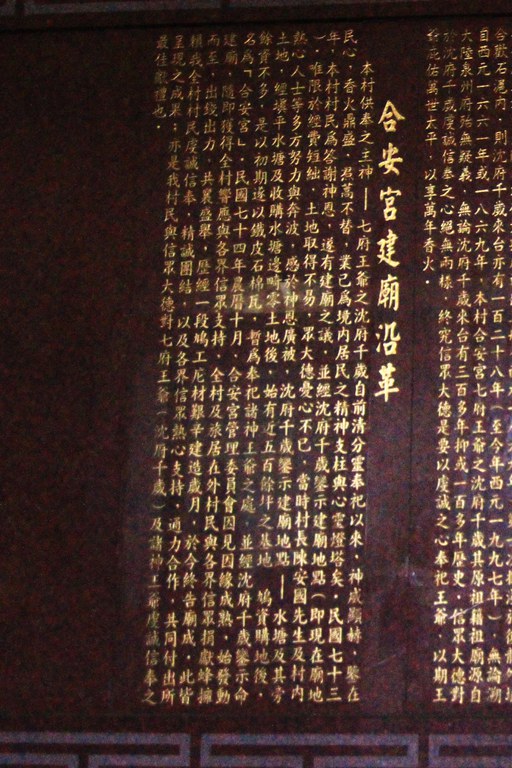 合歡石湳內，則沈府千歲來台亦有一百二十八年（至今年西元一九九七年），無論
自西元一六六一年或一八六九年，本村合安宮七府王爺之沈府千歲其原祖籍祖廟源自
大陸泉州府殆無疑義，無論沈府千歲來台有三百多年抑或一百多年歷史，信眾大德對
沈府千歲虔誠信奉之心絕無兩樣，終究信眾大德是要以虔誠之心奉祀王爺，以期王
佑萬世太平，以享萬年香火．
合安宮建廟沿革
本村供奉之主神——七府王爺之沈府千歲自前清分靈奉祀以來，神威顯赫，鑒在
民心，香火鼎盛，焄蒿不替，業已為境內居民之精神支柱與心靈燈塔矣，民國七十三
年，本村村民為答謝神恩，遂有建廟之議，並經沈府千歲鑒示建廟地點（即現在廟地
），唯限於經費短絀，土地取得不易，眾大德憂心不已，當時村長陳安國先生及村內
熱心人士等多方努力與奔波，感於神恩廣被，沈府千歲鑒示建廟地點——水塘及其旁
土地，經填平水塘及收購水塘邊畸零土地後，始有近五百餘坪之基地，鳩資購地後，
餘資不多，是以初期遂以鐵皮石棉瓦，暫為奉祀諸神王爺之處，並經沈府千歲鑒示命
名為「合安宮」，民國七十四年農曆十月，合安宮管理委員會因見因緣成熟，始發動
建廟，隨即獲得全村響應與各界信眾支持，全村及旅居在外村民與各界信眾捐獻蜂擁
而至，出錢出力，共襄盛舉，歷經一段鳩工庀材艱辛建造歲月，於今終告廟成，此皆
賴我全村村民虔誠信奉，精誠團結，以及各界信眾熱心支持，通力合作，共同付出所
呈現之成果；亦是我村民與信眾大德對七府王爺（沈府千歲）及諸神王爺虔誠信奉之
最佳獻禮也．